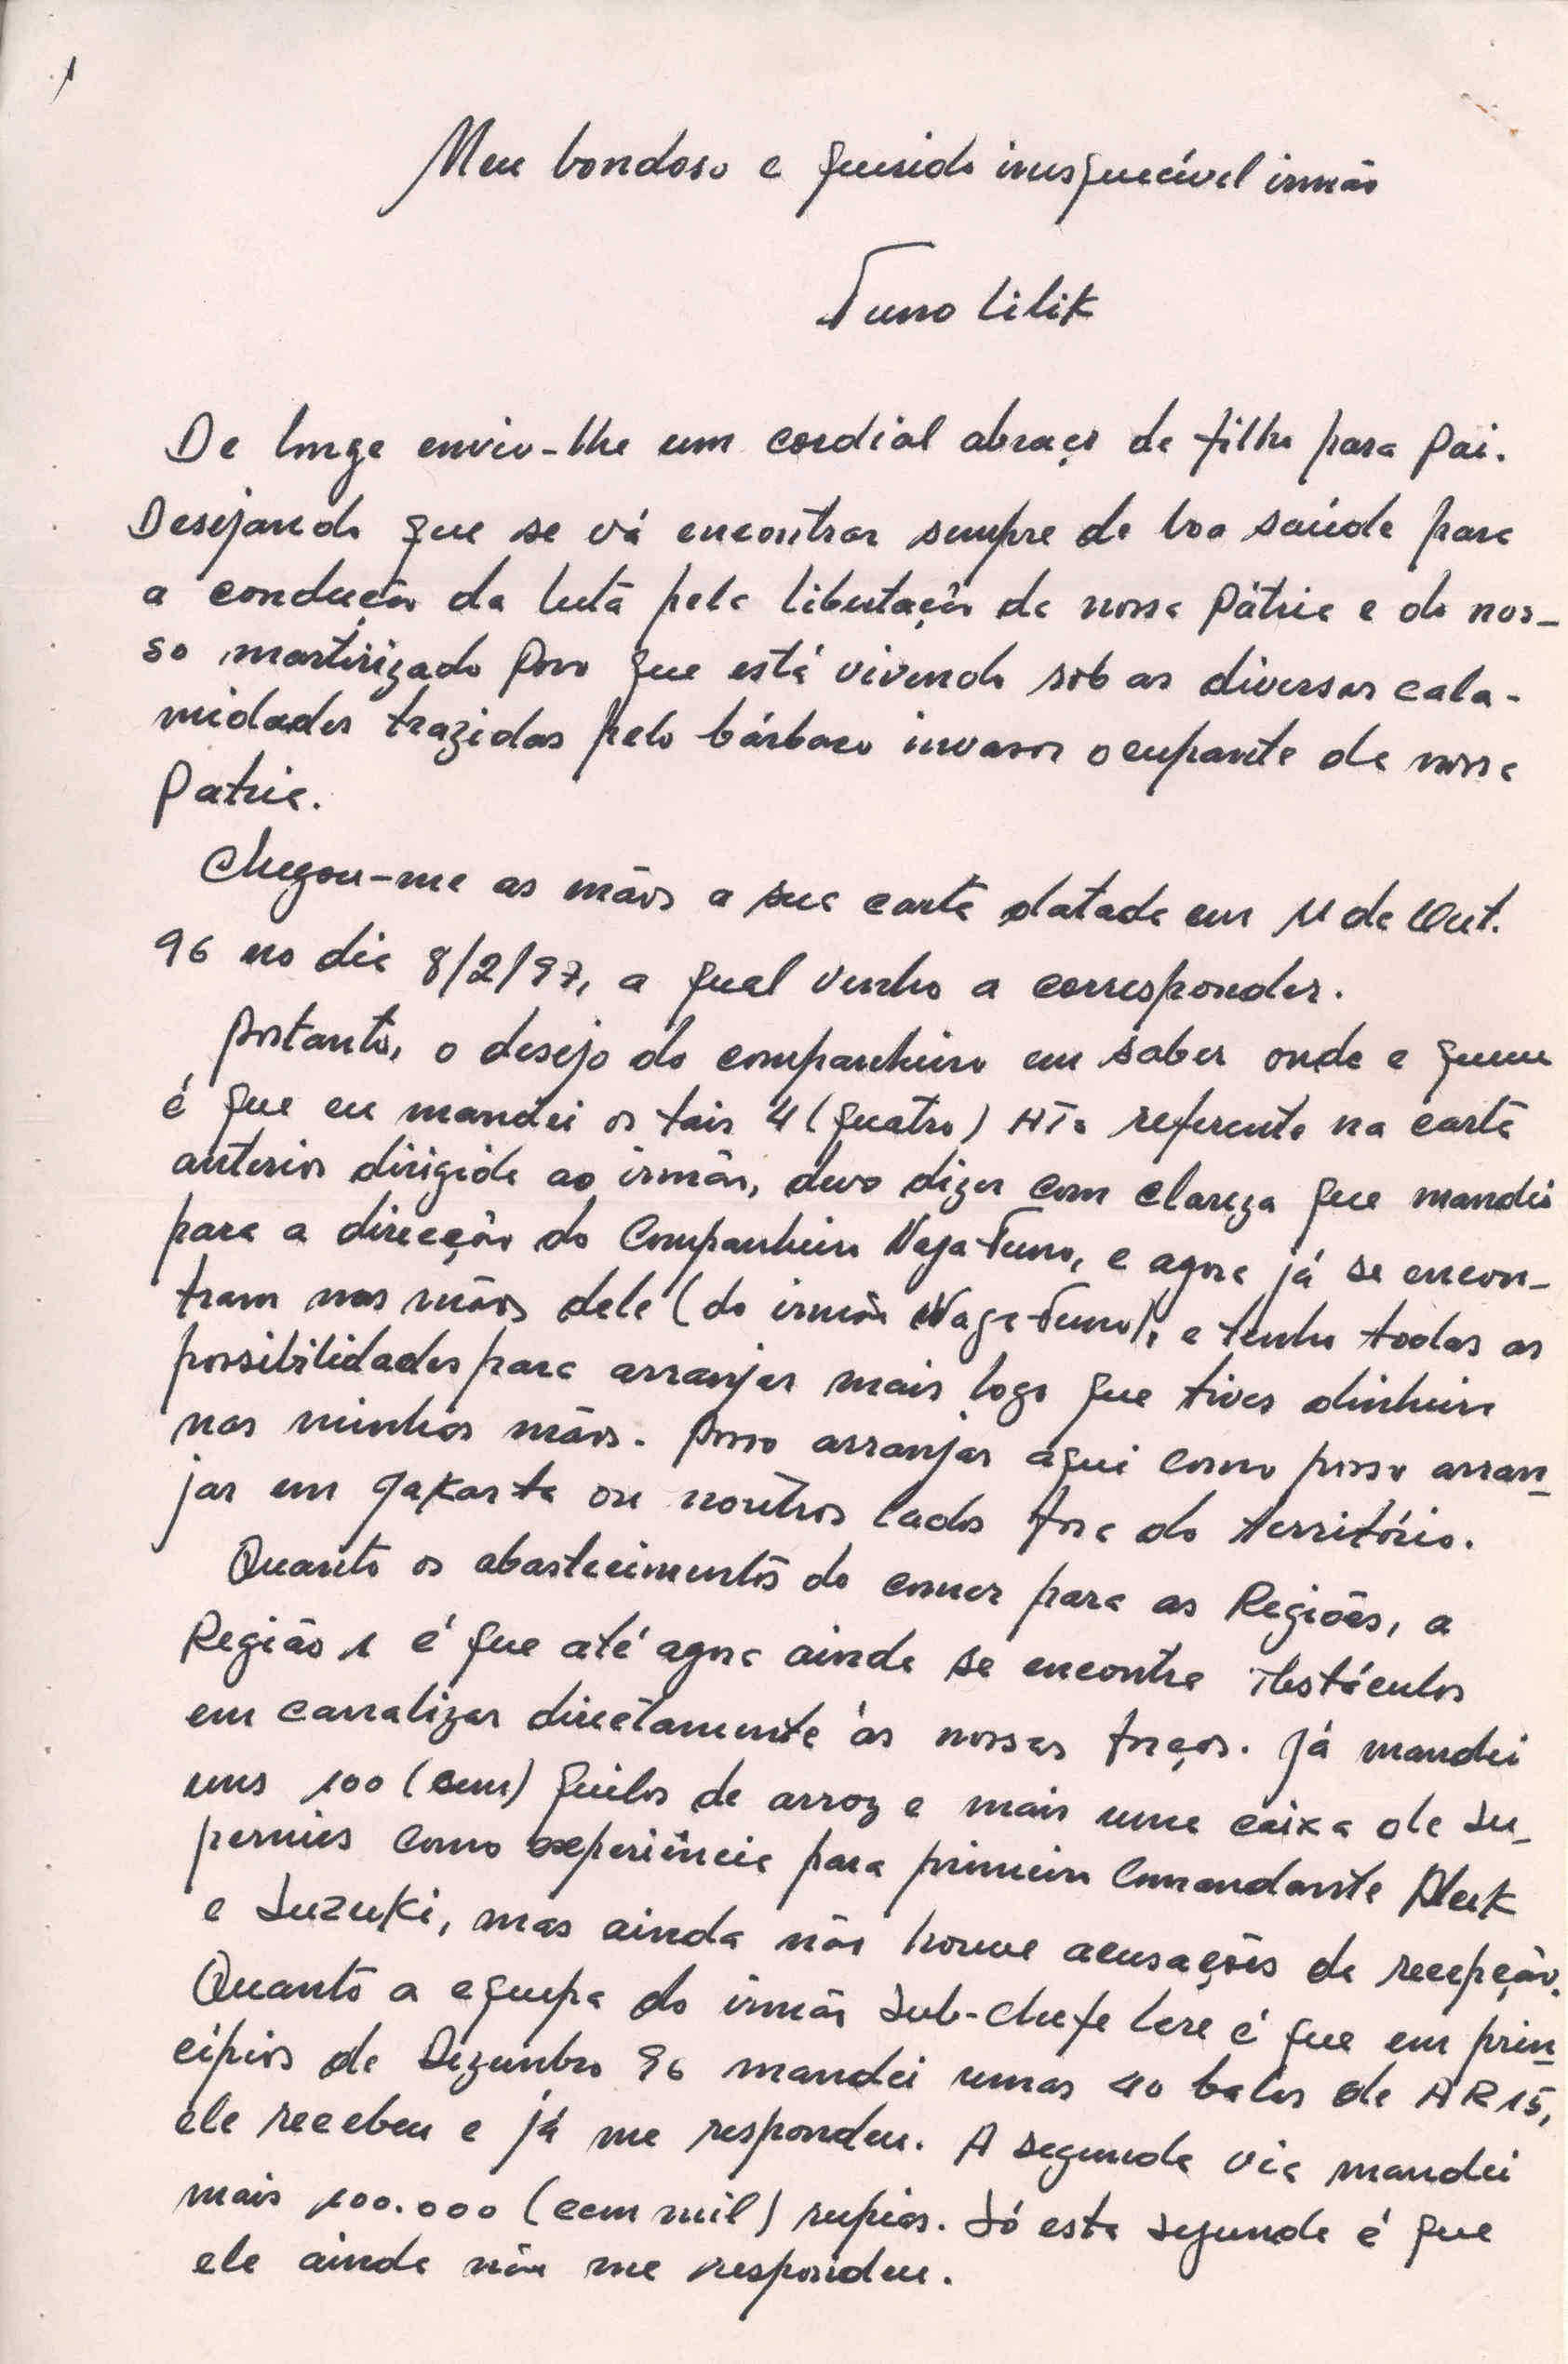 1
Meu bondoso e querido inesquecível irmão
Tuno Lilik
De longe envio-lhe um cordial abraço de filho para Pai.
Desejando que se vá encontrar sempre de boa saúde para
a condução da luta pela libertação da nossa Pátria e do nos-
so martirizado Povo que está vivendo sob as diversas cala-
midades trazidas pelo bárbaro invasor ocupante da nossa
Patria.
Chegou-me as mãos a sua carta datada em 11 de Out.
96 no dia 8/2/97, a qual venho a corresponder.
Portanto, o desejo do companheiro em saber onde e quem
é que eu mandei os tais 4 (quatro) HTs referente na carta
anterior dirigida ao irmão, devo dizer com clareza que mandei
para a direcção do Companheiro Naga Tuno, e agora já se encon-
tram nas mãos dele (do irmão Naga Tuno), e tenho todas as
possibilidades para arranjar mais logo que tiver dinheiro
nas minhas mãos. Posso arranjar aqui como posso arran-
jar em Jakarta ou noutros lados fora do território.
Quanto os abastecimentos do comer para as Regiões, a
Região 1 é que até agora ainda se encontra obstáculos
em canalizar directamente às nossas forças. Já mandei
uns 100 (cem) quilos de arroz e mais uma caixa de Su-
permies como experiência para primeiro Comandante Aluk
e Suzuki, mas ainda não houve acusações de recepção.
Quanto a equipa do irmão Sub-Chefe Lere é que em prin-
cípios de Dezembro 96 mandei umas 40 balas de AR15,
ele recebeu e já me respondeu. A segunda via mandei
mais 100.000 (cem mil) rupias. Só esta segunda é que
ele ainda não me respondeu.